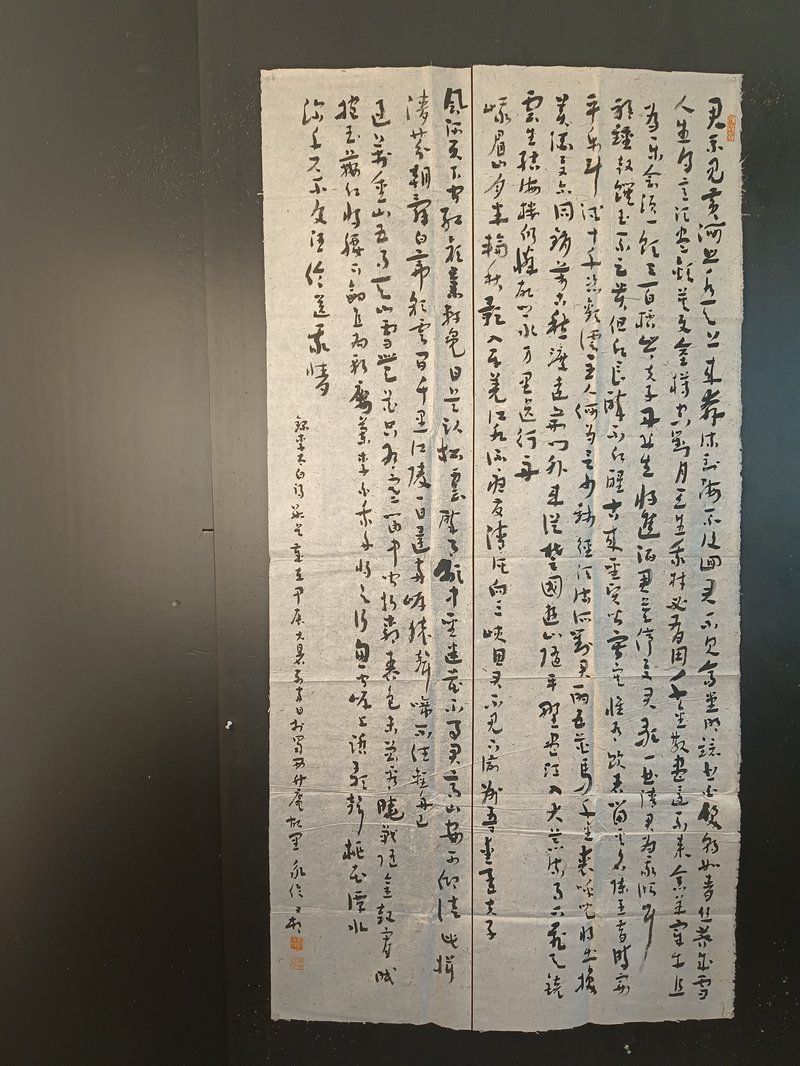 君不見黃河之水天上來奔流到海不復回君不見高堂明鏡悲白髮朝如青絲暮成雪
人生得意須盡歡莫使金樽空對月天生我材必有用千金散盡還復來烹羊宰牛且
為樂會須一飲三百杯岑夫子丹丘生將進酒君莫停與君歌一曲請君為我側耳
聽鐘鼓饌玉不足貴但願長醉不願醒古來聖賢皆寂寞惟有飲者留其名陳王昔時宴
平樂斗酒十千恣歡謔主人何為言少錢徑須沽取對君酌五花馬千金裘呼兒將出換
美酒與爾同銷萬古愁渡遠荊門外來從楚國遊山隨平野盡江入大荒流月下飛天鏡
雲生結海樓仍憐故鄉水萬里送行舟
峨眉山月半輪秋影入平羌江水流夜發清溪向三峽思君不見下渝州吾愛孟夫子
風流天下聞紅顏棄軒冕白首臥松雲醉月頻中聖迷花不事君高山安可仰徒此揖
清芬朝辭白帝彩雲間千里江陵一日還兩岸猿聲啼不住輕舟已
過萬重山五月天山雪無花只有寒笛中聞折柳春色未曾看曉戰隨金鼓宵眠
抱玉鞍願將腰下劍直為斬樓蘭李白乘舟將欲行忽聞岸上踏歌聲桃花潭水
深千尺不及汪倫送我情
錄李太白詩數首歲在甲辰大暑